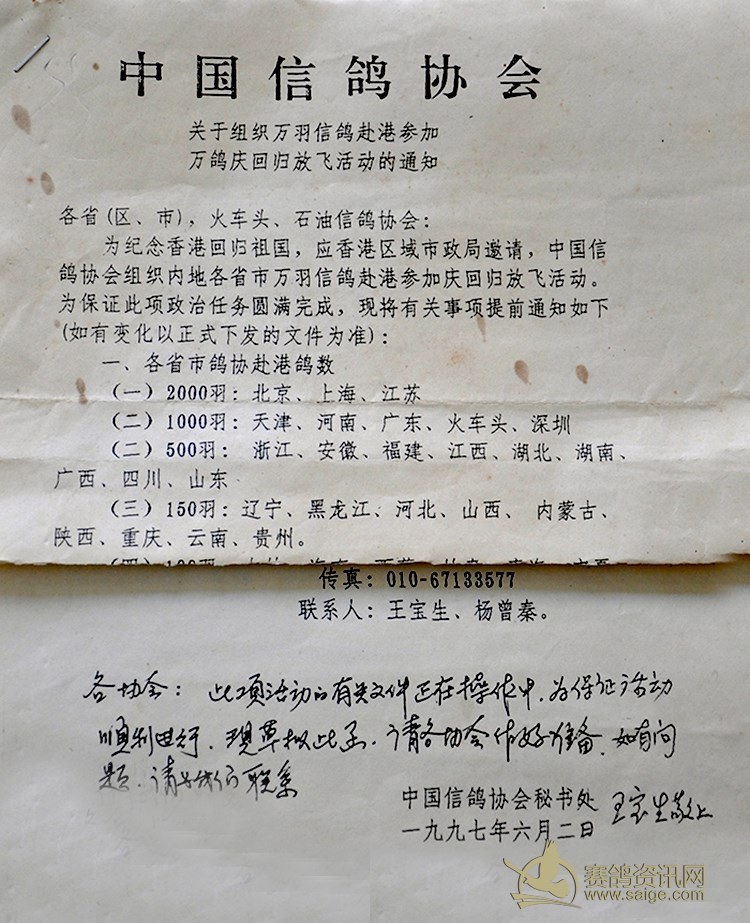 中国信鸽协会
关于组织万羽信鸽赴港参加
万鸽庆回归放飞活动的通知
各省(区、市)，火车头、石油信鸽协会：
为纪念香港回归祖国，应香港区域市政局邀请，中国信
鸽协会组织内地各省市万羽信鸽赴港参加庆回归放飞活动。
为保证此项政治任务圆满完成，现将有关事项提前通知如下
(如有变化以正式下发的文件为准)：
一、各省市鸽协赴港鸽数
(一) 2000羽：北京、上海、江苏
(二) 1000羽：天津、河南、广东、火车头、深圳
(二) 500羽： 浙江、安徽、福建、江西、湖北、湖南、
广西、四川、山东
(三) 150羽：辽宁、黑龙江、河北、山西、 内蒙古、
陕西、重庆、云南、贵州。
传真：010-67133577
联系人：王宝生、杨曾秦。
各协会：此项活动的有关文件正在操作中，为保证活动
顺利进行，现草拟此函，请各协会作好准备，如有问
题，请与我们联系
中国信鸽协会秘书处 王宝生敬上
一九九七年六月二日
赛鸽资讯网
www.saige.com